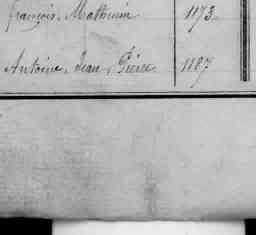 françois, Mathurin 1173.
Antoine, Jean, Pierre 1187